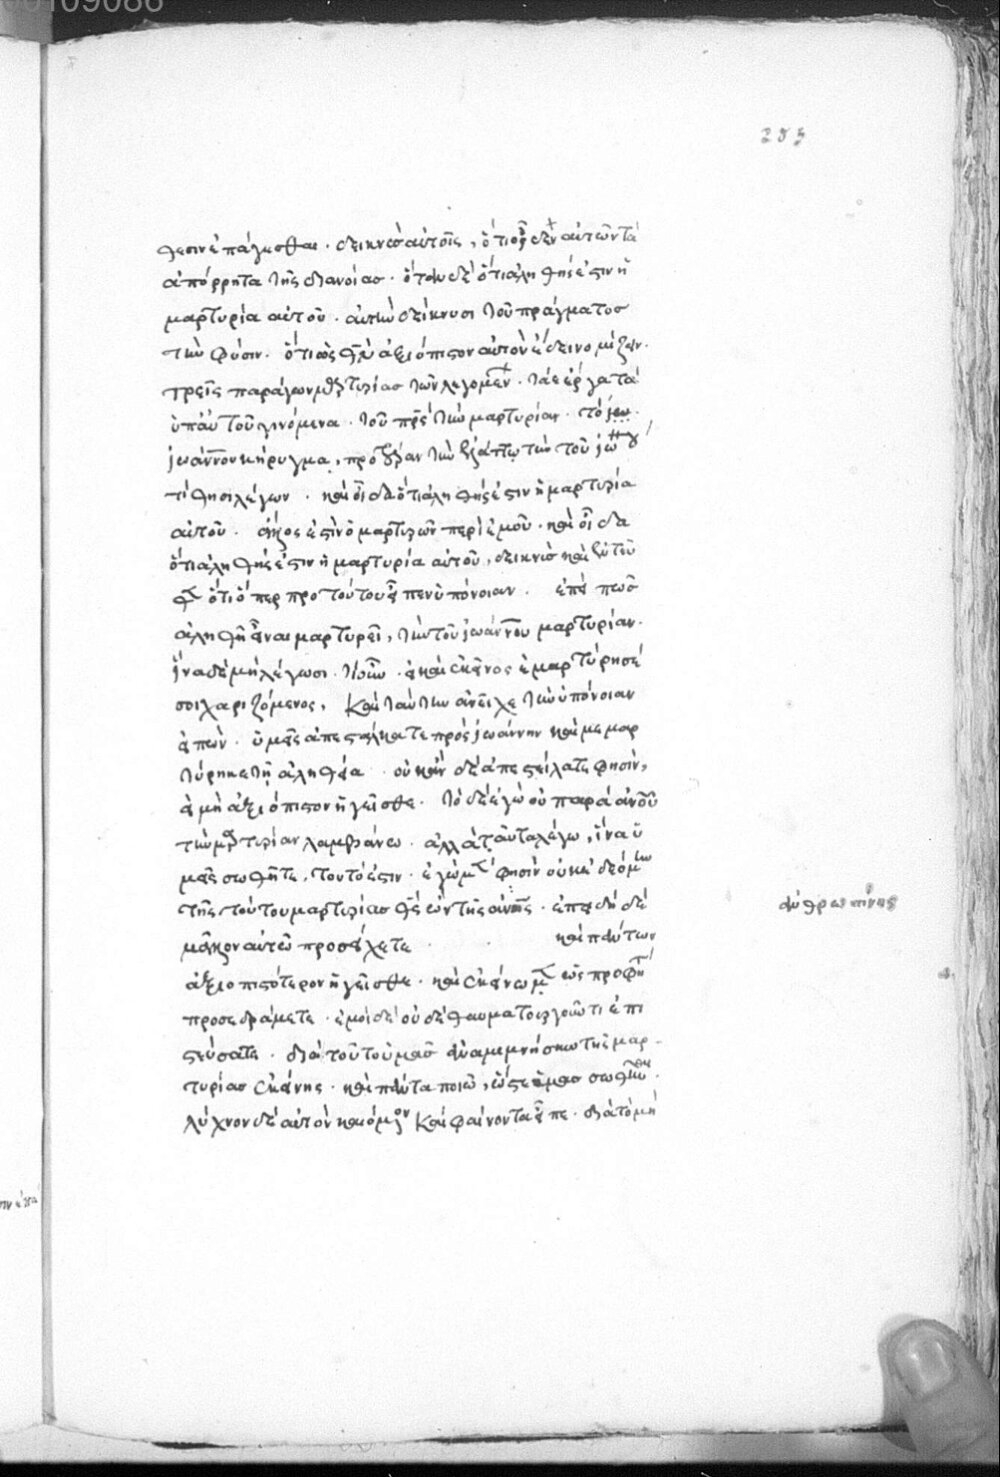 255
θεσιν ἐπάγεσθαι · δεικνὺς αὐτοῖς, ὅτι οἶδεν αὐτῶν τὰ
ἀπόρρητα τῆς διανοίας · ὅταν δὲ ὅτι ἀληθής ἐστιν ἡ
μαρτυρία αὐτοῦ · αὐτὴν δείκνυσι τοῦ πράγματος
τὴν φύσιν · ὅτι ὡς ἀξιόπιστον αὐτὸν ἐκεῖνο μεῖζον ·
τρεῖς παράγων μαρτυρίας τῶν λεγομένων · τά τε ἔργα τὰ
ὑπ' αὐτοῦ γινόμενα · τοῦ πρς τὴν μαρτυρίαν · τὸ
ἰωάννου κήρυγμα, πρότερον τὴν ἐλάττω τὴν τοῦ ἰωάννου
τίθησι λέγων · καὶ οἶδα ὅτι ἀληθής ἐστιν ἡ μαρτυρία
αὐτοῦ · ἄλλος ἐστὶν ὁ μαρτυρῶν περὶ ἐμοῦ · καὶ οἶδα
ὅτι ἀληθής ἐστιν ἡ μαρτυρία αὐτοῦ, δεικνὺς καὶ ἐκ τού
του ὅτι ὅπερ πρὸ τούτου εἶπεν ὑπόνοιαν · ἐπεὶ πῶς
ἀληθῆ εἶναι μαρτυρεῖ, τὴν τοῦ ἰωάννου μαρτυρίαν ·
ἵνα δὲ μὴ λέγωσι · τί οὖν · εἰ καὶ ἐκεῖνος ἐμαρτύρησέ
σοι χαριζόμενος, καὶ ταύτην ἀνεῖλε τὴν ὑπόνοιαν
εἰπὼν · ὑμεῖς ἀπεστάλκατε πρὸς ἰωάννην καὶ μεμαρ
τύρηκε τῇ ἀληθείᾳ · οὐκ ἂν δὲ ἀπεστείλατε φησὶν,
εἰ μὴ ἀξιόπιστον ἡγεῖσθε · τὸ δὲ ἐγὼ οὐ παρὰ ἀνοῦ
τὴν μαρτυρίαν λαμβάνω · ἀλλὰ ταῦτα λέγω, ἵνα ὑ
μεῖς σωθῆτε, τουτό ἐστιν · ἐγὼ μὲν φησὶν οὐκ ἐδεόμην
τῆς τούτου μαρτυρίας θς ὢν τῆς ἀνίνης · ἐπειδὴ δὲ
ἀνθρωπίνης
μᾶλλον αὐτῷ προσέχετε · καὶ πάντων
ἀξιοπιστότερον ἡγεῖσθε · καὶ ἐκείνῳ μὲν ὡς προφήτῃ
προσεδράμετε · ἐμοὶ δὲ οὐδὲ θαυματουργοῦντι ἐπι
στεύσατε · διὰ τοῦτο ὑμᾶς ἀναμιμνήσκω τῆς μαρ
τυρίας ἐκείνης · καὶ πάντα ποιῶ, ὥστε ὑμᾶς σωθῆναι ·
λύχνον δὲ αὐτὸν καιόμενον καὶ φαίνοντα εἶπε · διὰ τὸ μὴ